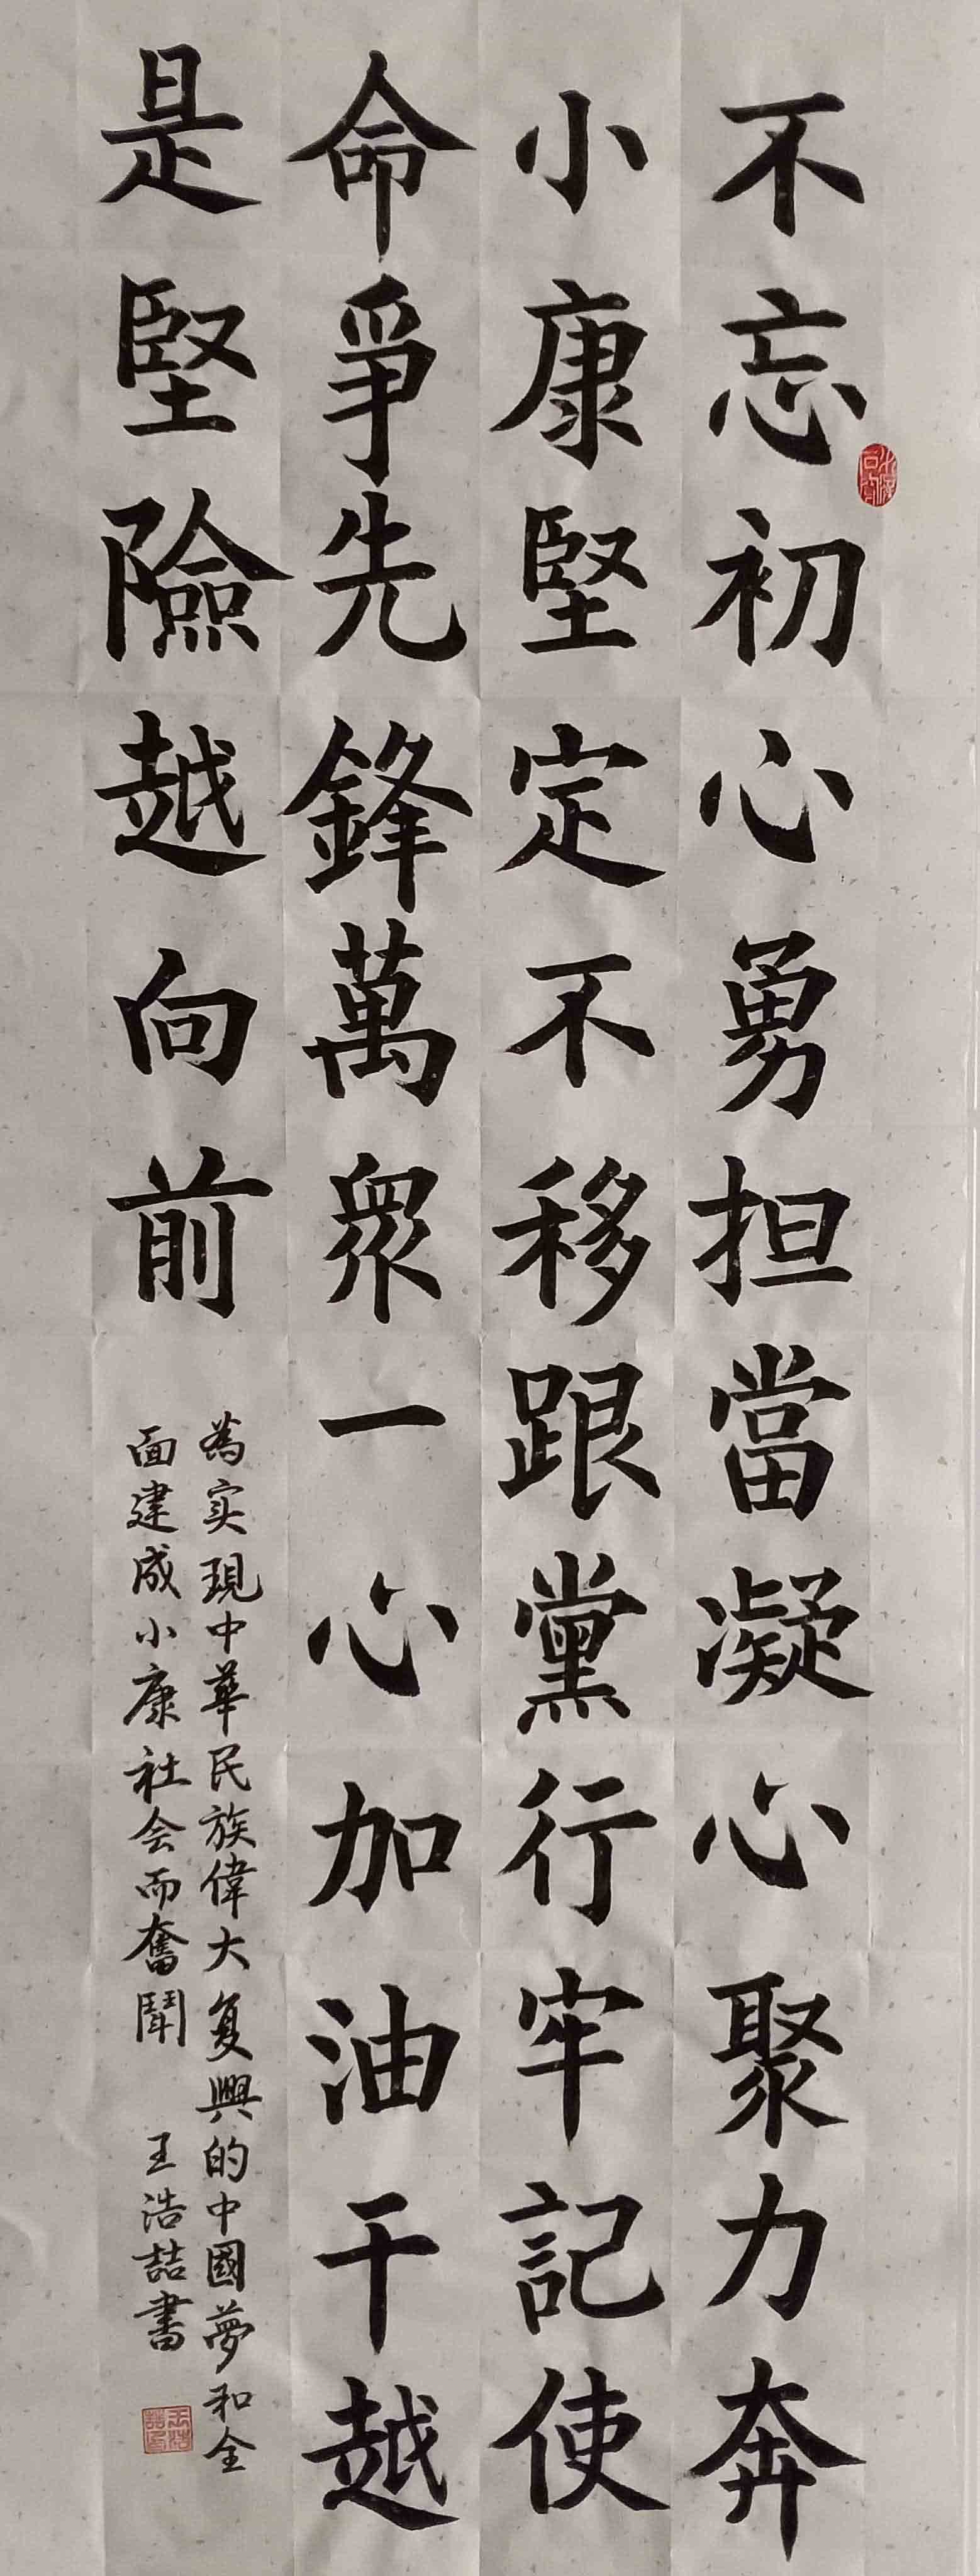 不忘初心勇担當凝心聚力奔
小康堅定不移跟黨行牢記使
命爭先鋒萬眾一心加油干越
是堅險越向前
為实現中華民族偉大复興的中國夢和全
面建成小康社会而奮鬪
王浩喆書